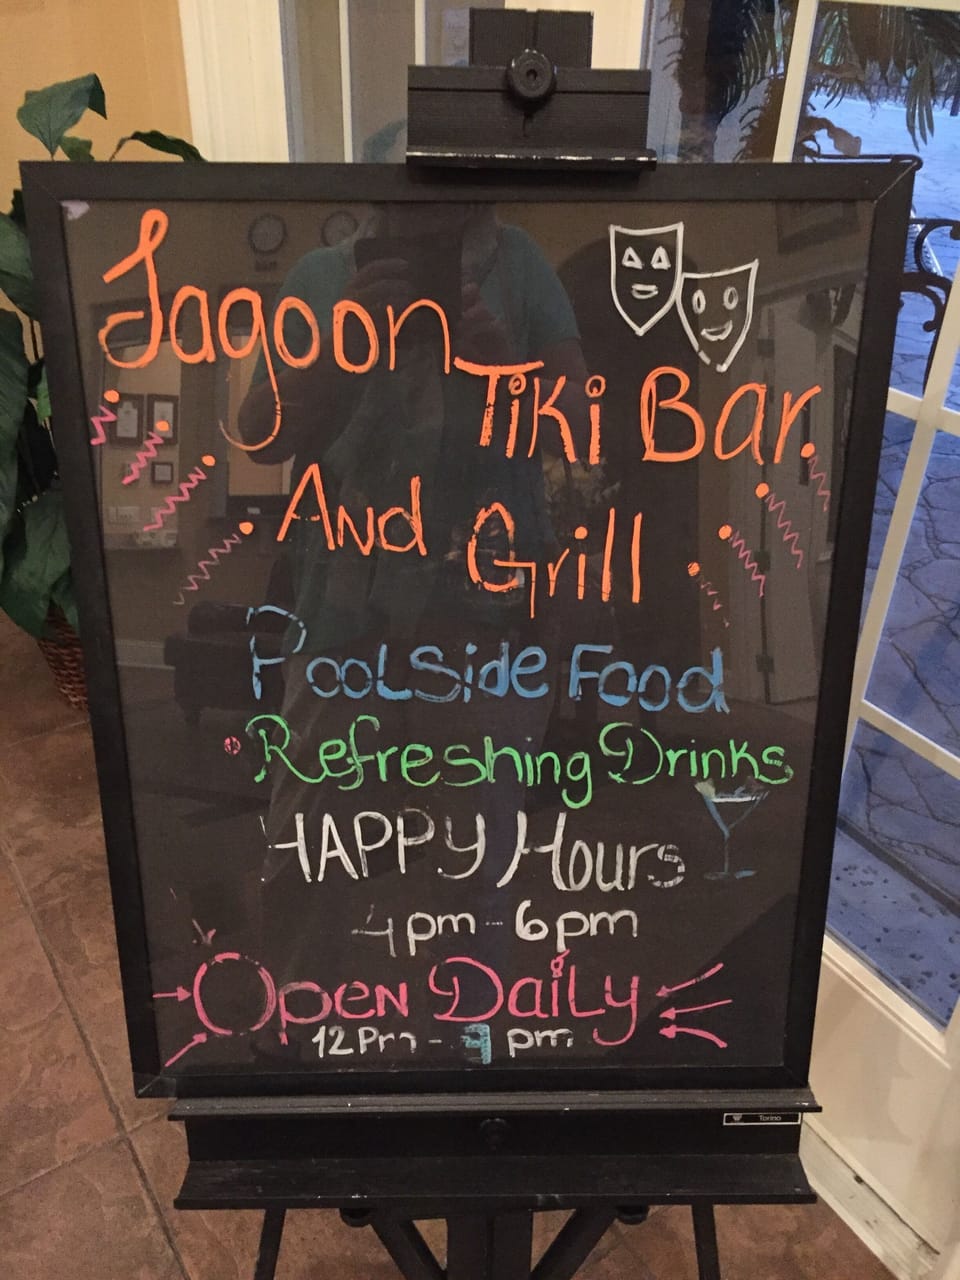 Lagoon
Tiki Bar
And Grill
Poolside Food
Refreshing Drinks
HAPPY Hours
4pm - 6pm
Open Daily
12Pm - pm
Torino